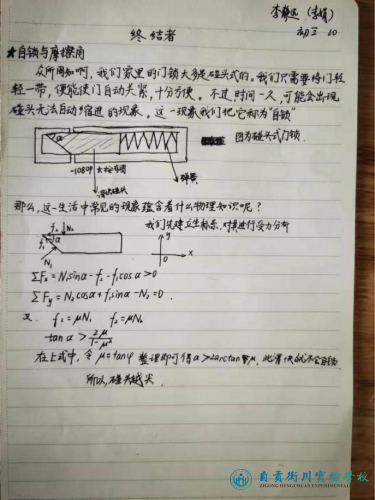 李
初 10
终结者
★自锁与摩擦角
众所周知啊，我们家里的门锁大多是碰头式的。我们只需要将门轻
轻一带，便能使门自动关紧，十分方便。不过，时间一久，可能会出现
碰头无法自动缩进的现象。这一现象我们把它称为"自锁"
α
图为碰头式门锁.
弹簧
那么，这一生活中常见的现象蕴含着什么物理知识呢？
我们先建立坐标系，对其进行受力分析
f₂ N₂
f₁ α
N₁
y
x
ΣFx = N₁sinα - f₂ - f₁cosα > 0
ΣFy = N₁cosα + f₁sinα - N₂ = 0 .
又. f₁ = μN₁ f₂ = μN₂
tanα > 2μ/1-μ²
在上式中，令 μ=tanφ 整理即可得 α > 2arctanμ，此滑块就不会自锁.
所以，碰头越尖.
自贡衡川实验学校
ZIGONG HENGCHUAN EXPERIMENTAL